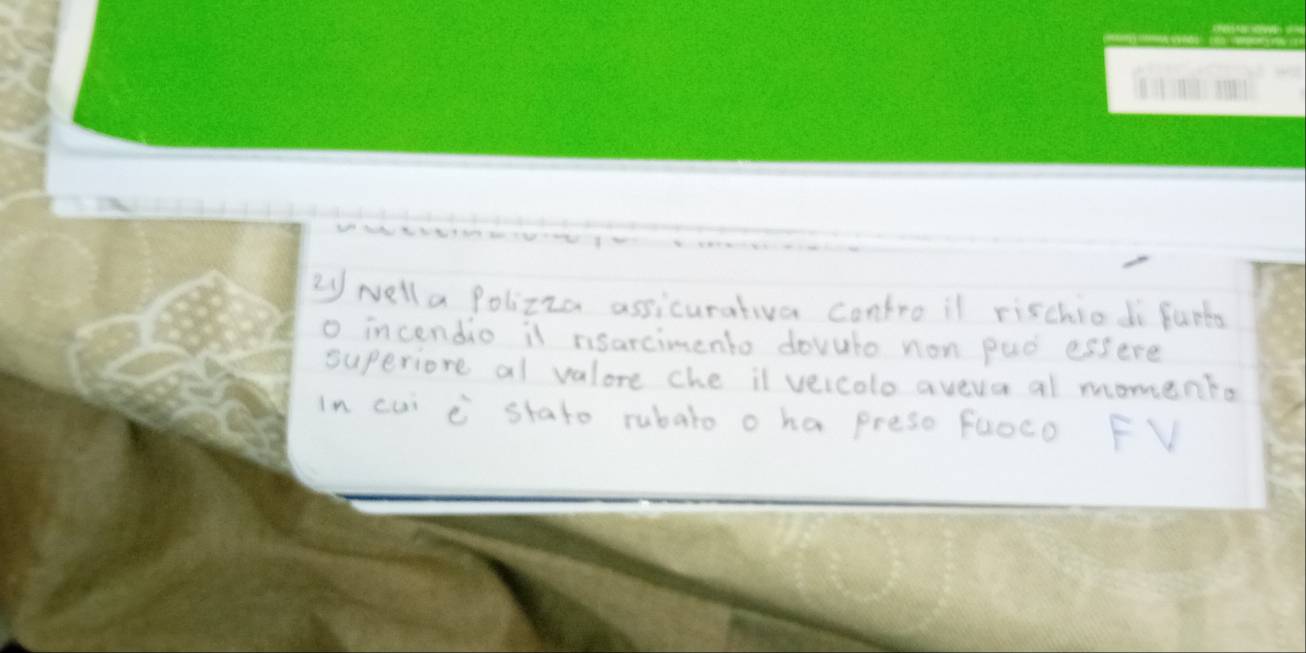 21) Nella Polizza assicurativa contro il rischio di furto
o incendio il risarcimento dovuto non può essere
superiore al valore che il veicolo aveva al momento
in cui è stato rubato o ha preso fuoco FV